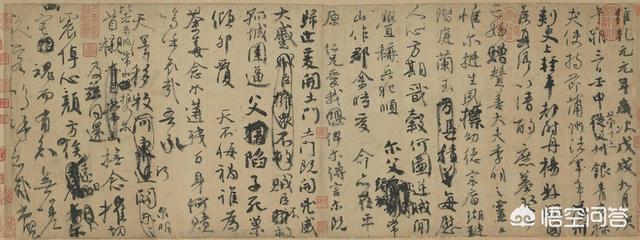 維乾元元年歲次戊戌九月庚
午朔三日壬申第十三叔銀青光祿
夫使持節蒲州諸軍事蒲州
刺史上輕車都尉丹楊縣開
國侯真卿以清酌庶羞祭于
亡姪贈贊善大夫季明之靈曰
惟爾挺生夙標幼德宗廟瑚璉
階庭蘭玉每慰
人心方期戩穀何圖逆賊閒
釁稱兵犯順爾父竭誠常
山作郡余時受命亦在平
原仁兄愛我俾爾傳言爾既
歸止爰開土門土門既開凶威
大蹙賊臣不救
孤城圍逼父陷子死巢
傾卵覆天不悔禍誰為
荼毒念爾遘殘百身何贖
嗚呼哀哉吾承
天澤移牧河關泉明
比者再陷常山攜爾
首櫬及茲同還撫念摧切
震悼心顏方俟
幽宅魂而有知無嗟
久客嗚呼哀哉尚饗
悟空问答